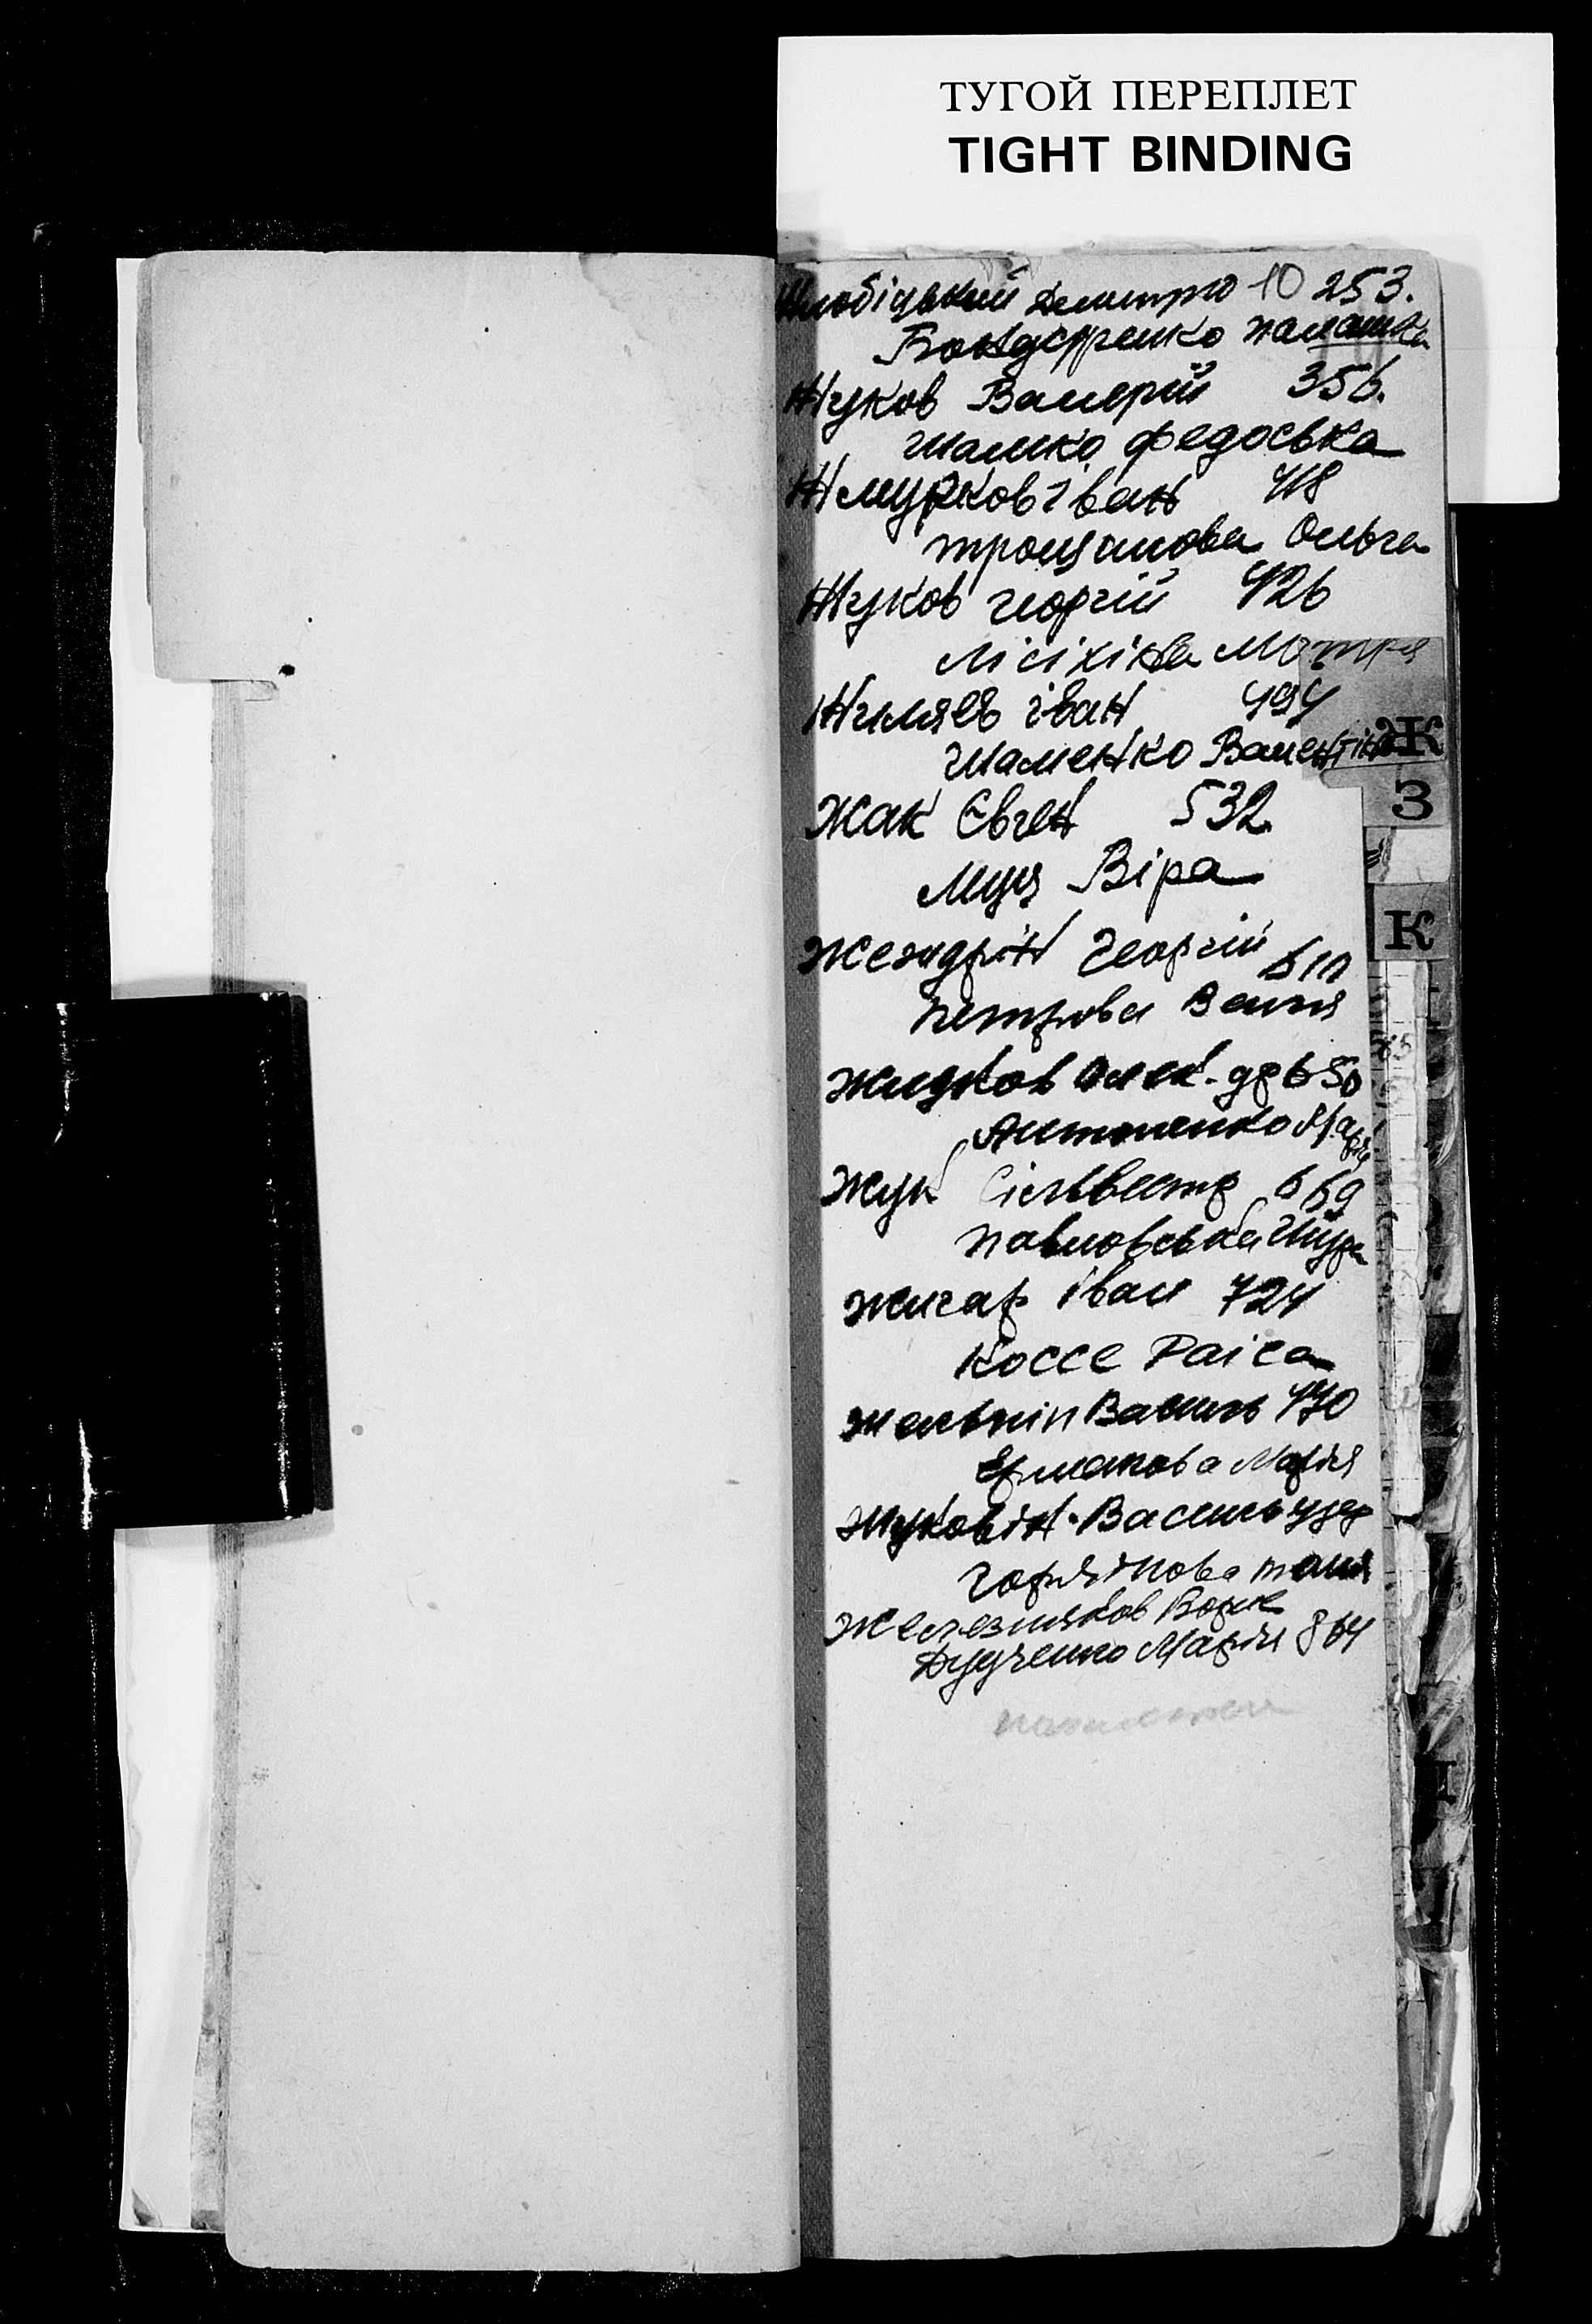 ТУГОЙ ПЕРЕПЛЕТ
TIGHT BINDING
Дмитро 10 253.
Бондаренко Палашка
Жуков Валерій 356.
Шамко Федоська
Жмурков іван 418
Трощилова Ольга
Жуков георгій 426
Лісіхіна Мотря
Жиляєв іван 494
Шаменко Валентіна
Ж
Жак Євген 532
З
Муц Віра
К
Георгій 610
Петрова Валя
Жидков Олек-др 650
Антоненко Марія
Жук Сільвестр 669
Павловська Шура
Жигар іван 724
Коссе Раіса
Василь 770
Єрмакова Марія
Жуковін Василь
Горяінова Таня
Железняков Борис
Дудченко Марія 864